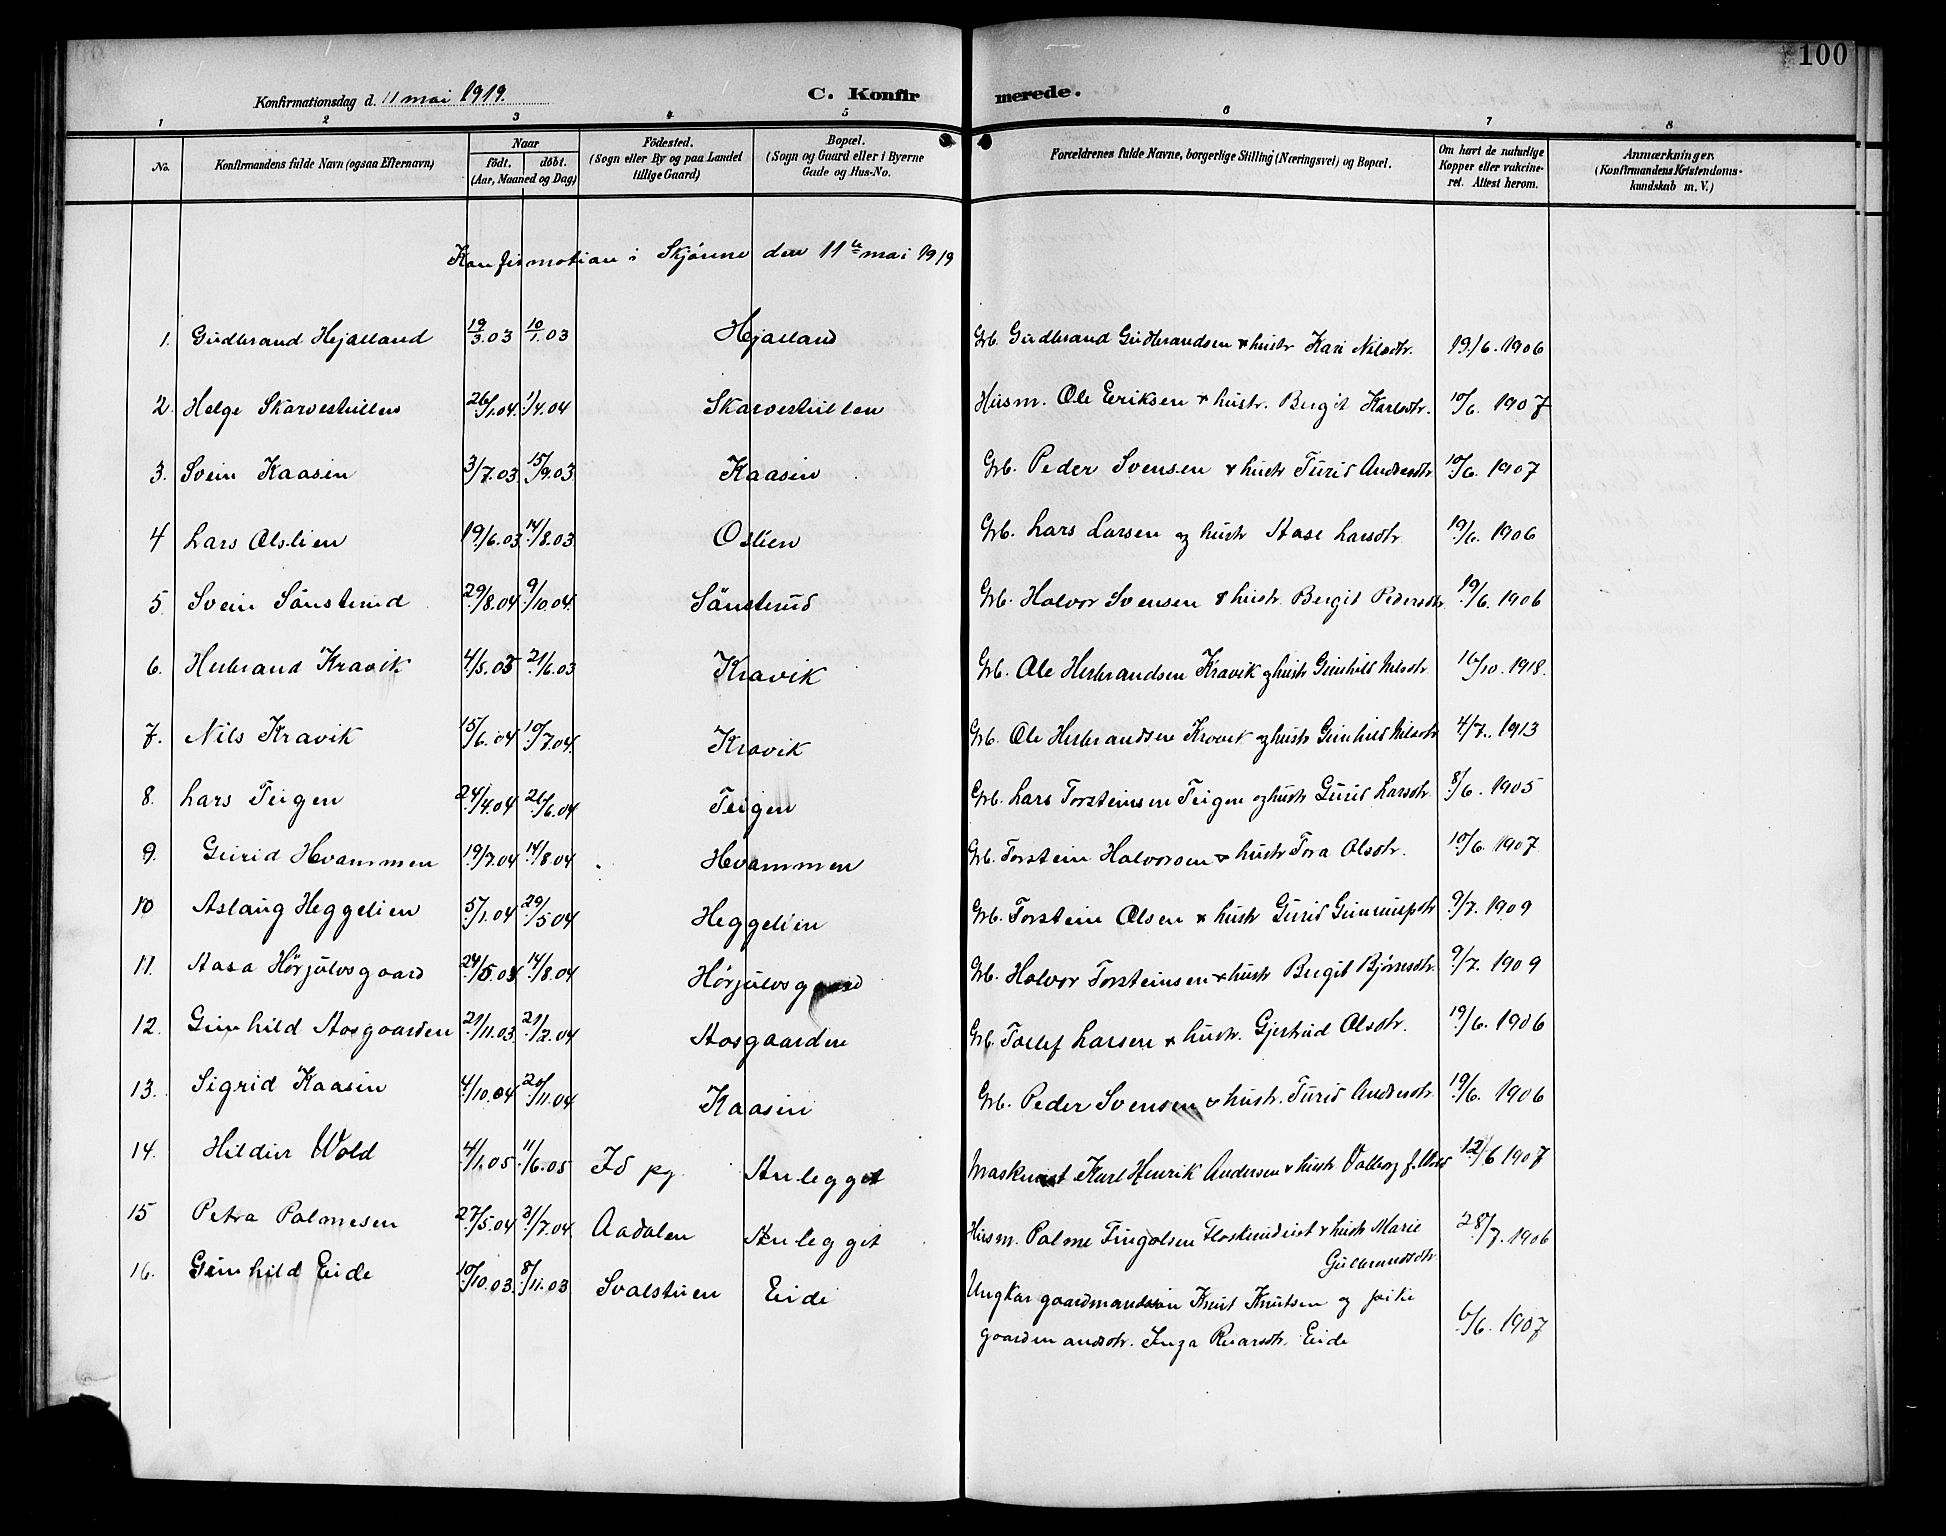 100
Konfirmationsdag d. 11 mai 1919.
C. Konfir merede.
1 2 3 4 5 6 7 8
No. Konfirmandens fulde Navn (ogsaa Efternavn) Naar født. døbt. (Aar, Maaned og Dag) Fødested. (Sogn eller By og paa Landet tillige Gaard) Bopæl. (Sogn og Gaard eller i Byerne Gade og Hus-No. Forældrenes fulde Navne, borgerlige Stilling (Næringsvei) og Bopæl. Om havt de naturlige Kopper eller vakcineret. Attest herom. Anmærkninger. (Konfirmandens Kristendomskundskab m. V.)
Konfirmation i Skjønne den 11te mai 1919
1. Gudbrand Hejalland 19/3.03 10/1.03 Hejalland Grb. Gudbrand Gudbrandsen & hustr Kari Nilsdtr. 19/6.1906
2. Helge Skarvestullen 26/1.04. 1/4.04 Skarvestullen Husm. Ole Eriksen & hustr. Bergit Karlsdtr. 10/6. 1907
3. Svein Kaasin 3/7.03 15/9.03 Kaasin Grb. Peder Svensen & hustr Turid Andersdtr 10/6. 1907
4 Lars Oslien 19/6.03 14/8.03 Oslien Grb. Lars Larsen og hustr Aase Larsdtr 19/6. 1906
5 Svein Sønsterud 29/8.04 9/10.04. Sønsterud Grb. Halvor Svensen & hustr. Bergit Pedersdtr 19/6. 1906
6. Herbrand Kravik 4/5.03 21/6.03 Kravik Grb. Ole Herbrandsen Kravik og hustr Gunhild Nilsdtr 16/10. 1918.
7. Nils Kravik 15/6.04 10/7.04. Kravik Grb. Ole Herbrandsen Kravik og hustr Gunhild Nilsdtr 4/7. 1913
8. Lars Teigen 24/4.04 26/6.04 Teigen Grb. Lars Torsteinsen Teigen og hustr Gurid Larsdtr 8/6. 1905
9. Gurid Hvammen 19/7.04 14/8.04 Hvammen Grb. Torstein Halvorsen & hustr Tora Olsdtr. 10/6. 1907
10 Aslaug Heggelien 5/1.04 29/5.04 Heggelien Grb. Torstein Olsen & hustr Gurid 9/7. 1909
11. Aasa Hørjulvsgaard 24/5.04 14/8.04 Hørjulvsgaard Grb. Halvor Torsteinsen & hustr Bergit Bjørnsdtr. 9/7. 1909
12. Gunhild Aasgaarden 21/11.03 21/2.04 Aasgaarden Grb. Tollef Larsen & hustr. Gjertrud Olsdtr. 19/6. 1906
13. Sigrid Kaasin 4/10.04 20/11.04 Kaasin Grb. Peder Svensen & hustr. Turid Andersdtr 19/6. 1906
14. Hildur Wold 4/1.05 11/6.05 Id pg. Anlegget Maskinist Karl Henrik Andersen & hustr Valborg f. Wold 12/6 1907
15 Petra Palmesen 27/5.04 31/7.04. Aadalen Anlegget Husm. Palme Fingalsen & hustr Marie Gulbrandsdtr 28/7. 1906
16. Gunhild Eide 10/10.03. 8/11.03 Svalstuen Eide Ungkar gaardmandssøn Knut Knutsen og pike
gaardmandsdtr. Inga Roarsdtr. Eide 6/6. 1907